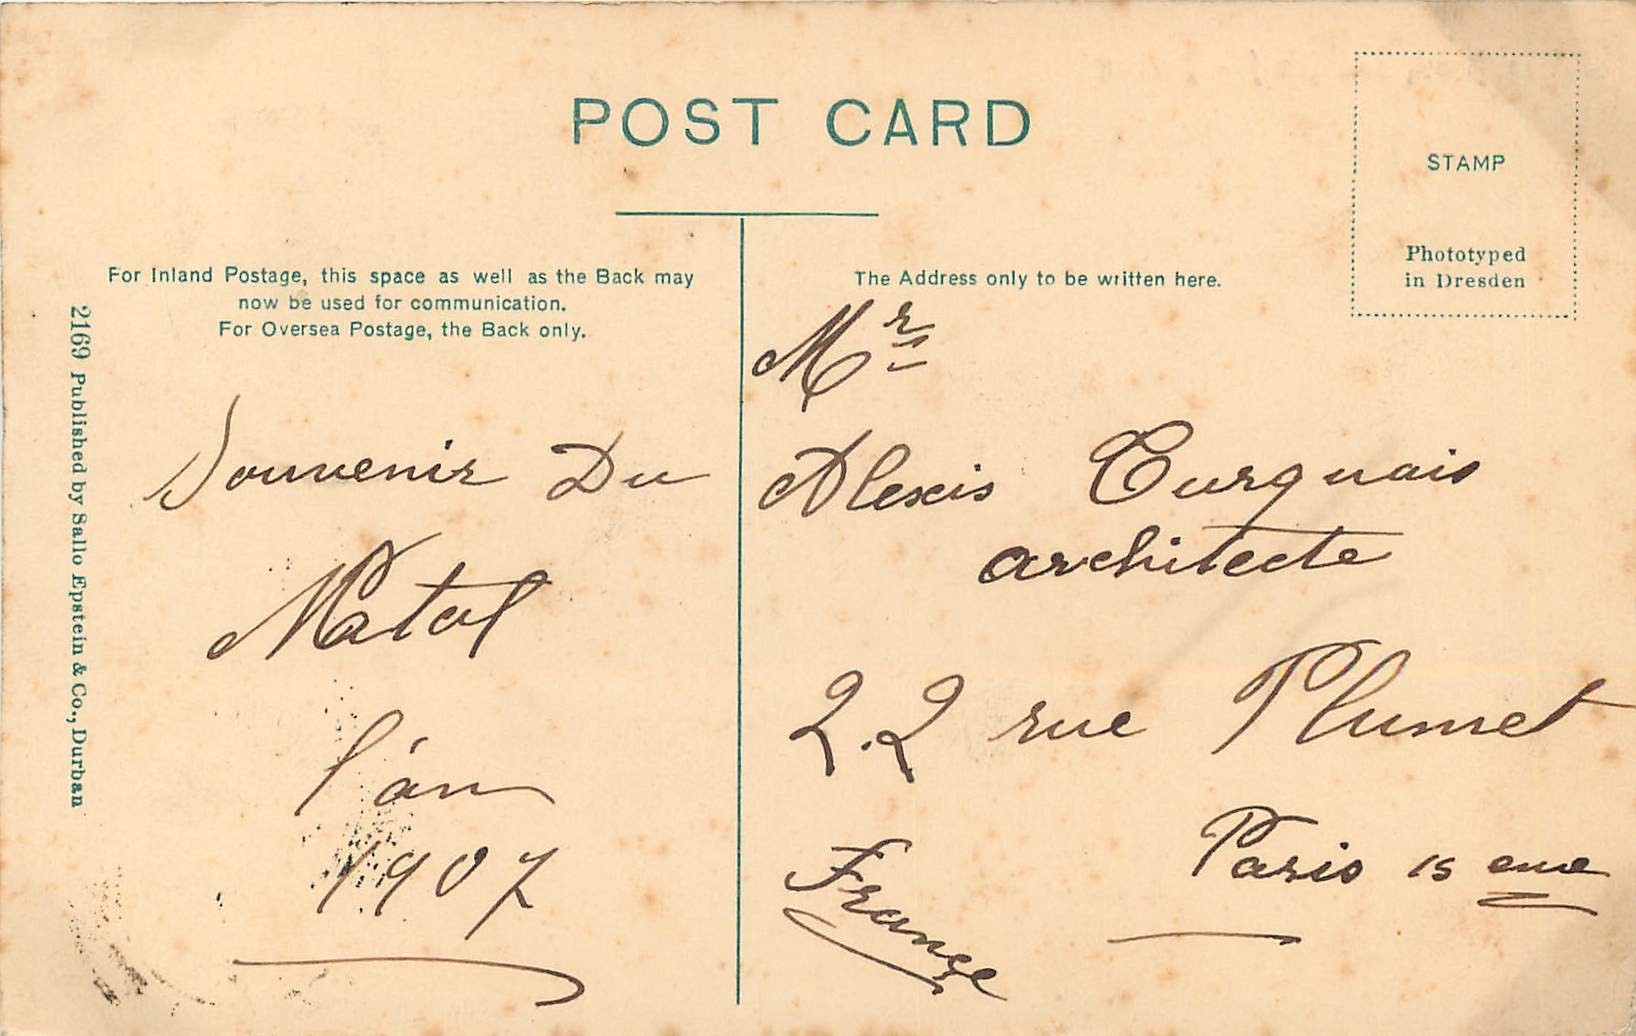 POST CARD
STAMP
Phototyped
in Dresden
For Inland Postage, this space as well as the Back may
now be used for communication.
For Oversea Postage, the Back only.
The Address only to be written here.
2169 Published by Sallo Epstein & Co., Durban
Souvenir Du
Natal
l'an
1907
Mr
Alexis
architecte
22 rue Plumet
Paris 15 eme
France